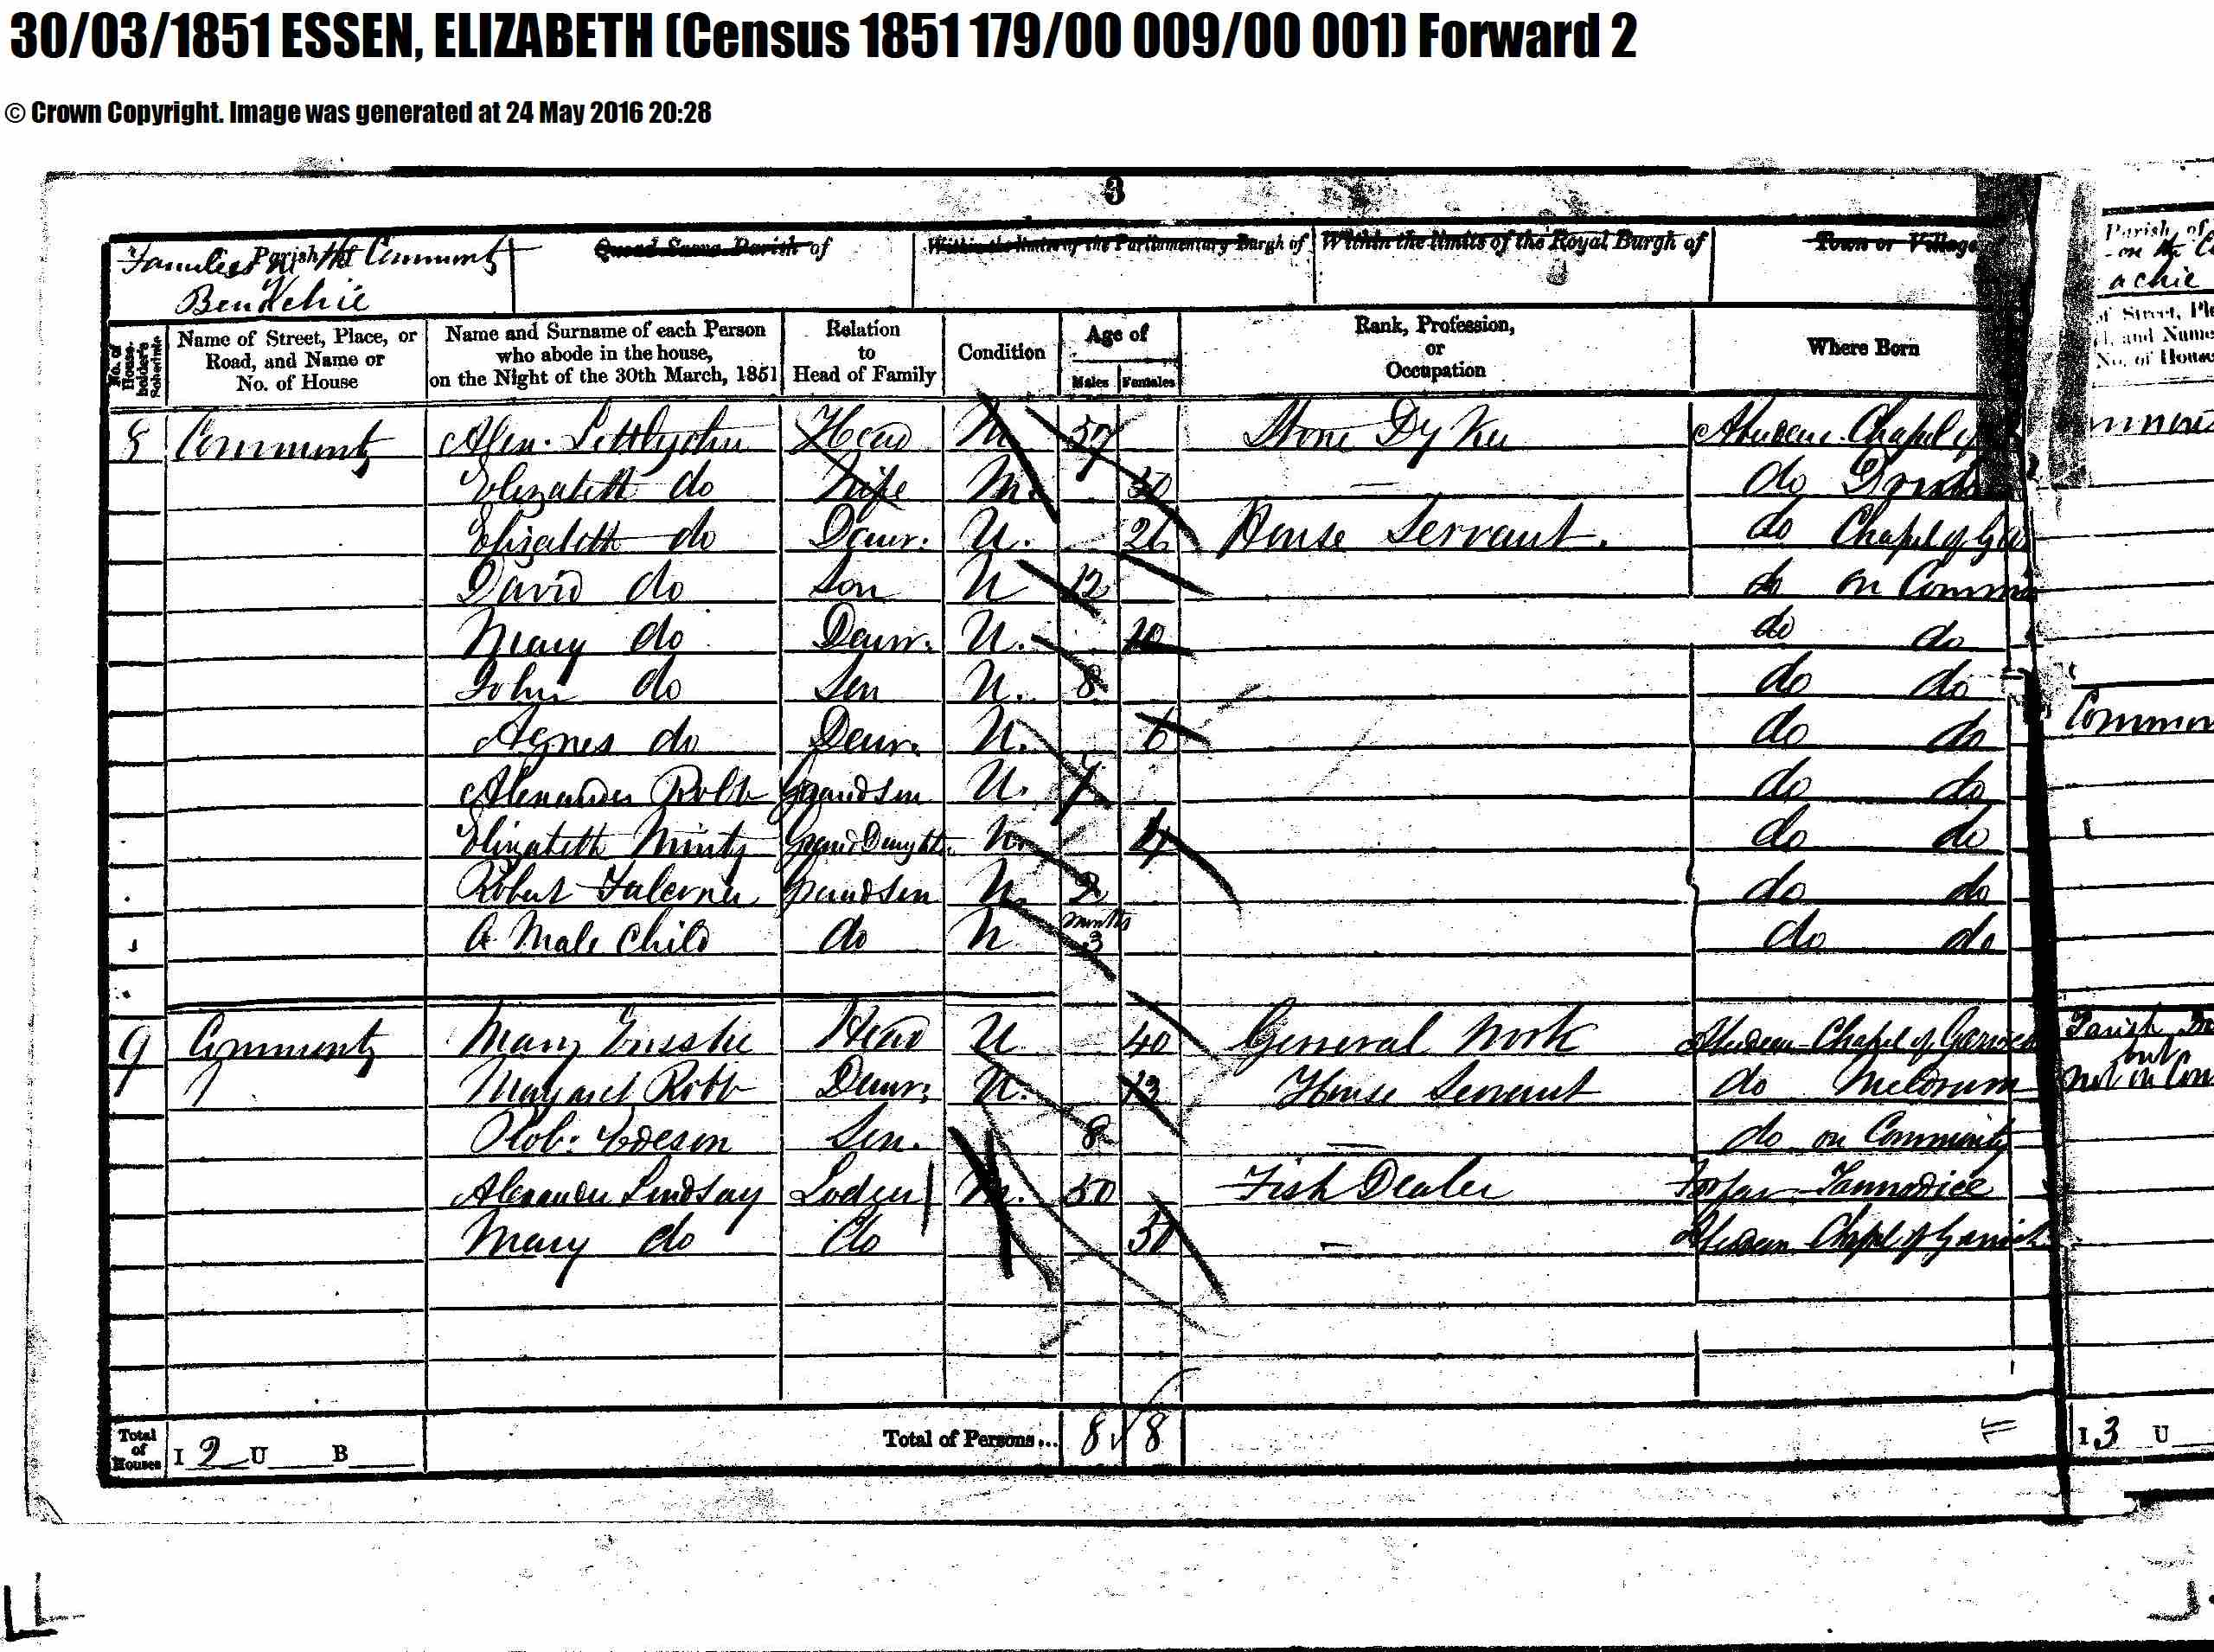 30/03/1851 ESSEN, ELIZABETH (Census 1851 179/00 009/00 001) Forward 2
© Crown Copyright. Image was generated at 24 May 2016 20:28
3
Parish of Quoad Sacra Parish of Within the limits of the Parliamentary Burgh of Within the limits of the Royal Burgh of Town or Village
Families on the Commonty
Benachie
No. of House-holder's Schedule
Name of Street, Place, or Road, and Name or No. of House
Name and Surname of each Person who abode in the house, on the Night of the 30th March, 1851
Relation to Head of Family
Condition
Age of
Males Females
Rank, Profession, or Occupation
Where Born
8 Commonty Alex. Littlejohn Head M. 57 Stone Dyker Aberdeen Chapel of
Elizabeth do Wife M. 50 — do
Elizabeth do Daur. U. 26 House Servant. do Chapel of
David do Son U 12 do on
Mary do Daur. U. 10 do do
John do Son U. 8 do do
Agnes do Daur. U. 6 do do
Alexander Robb Grandson U. 7 do do
Elizabeth Minty Grand Daught. U. 4 do do
Robert Falconer Grandson U. 2 do do
A Male Child do U months 3 do do
9 Commonty Mary Head U 40 General Work Aberdeen Chapel of Garioch
Margaret Robb Daur. U. 13 House Servant do Meldrum
Rob. Son. 8 — do on Commonty
Alexander Lindsay Lodger M. 50 Fish Dealer Forfar Tannadice
Mary do do 50 — Aberdeen Chapel of Garioch
Total of Houses I 2 U B Total of Persons... 8 8
Parish of
on the
achie
Common
Parish
but
not in
I 3 U